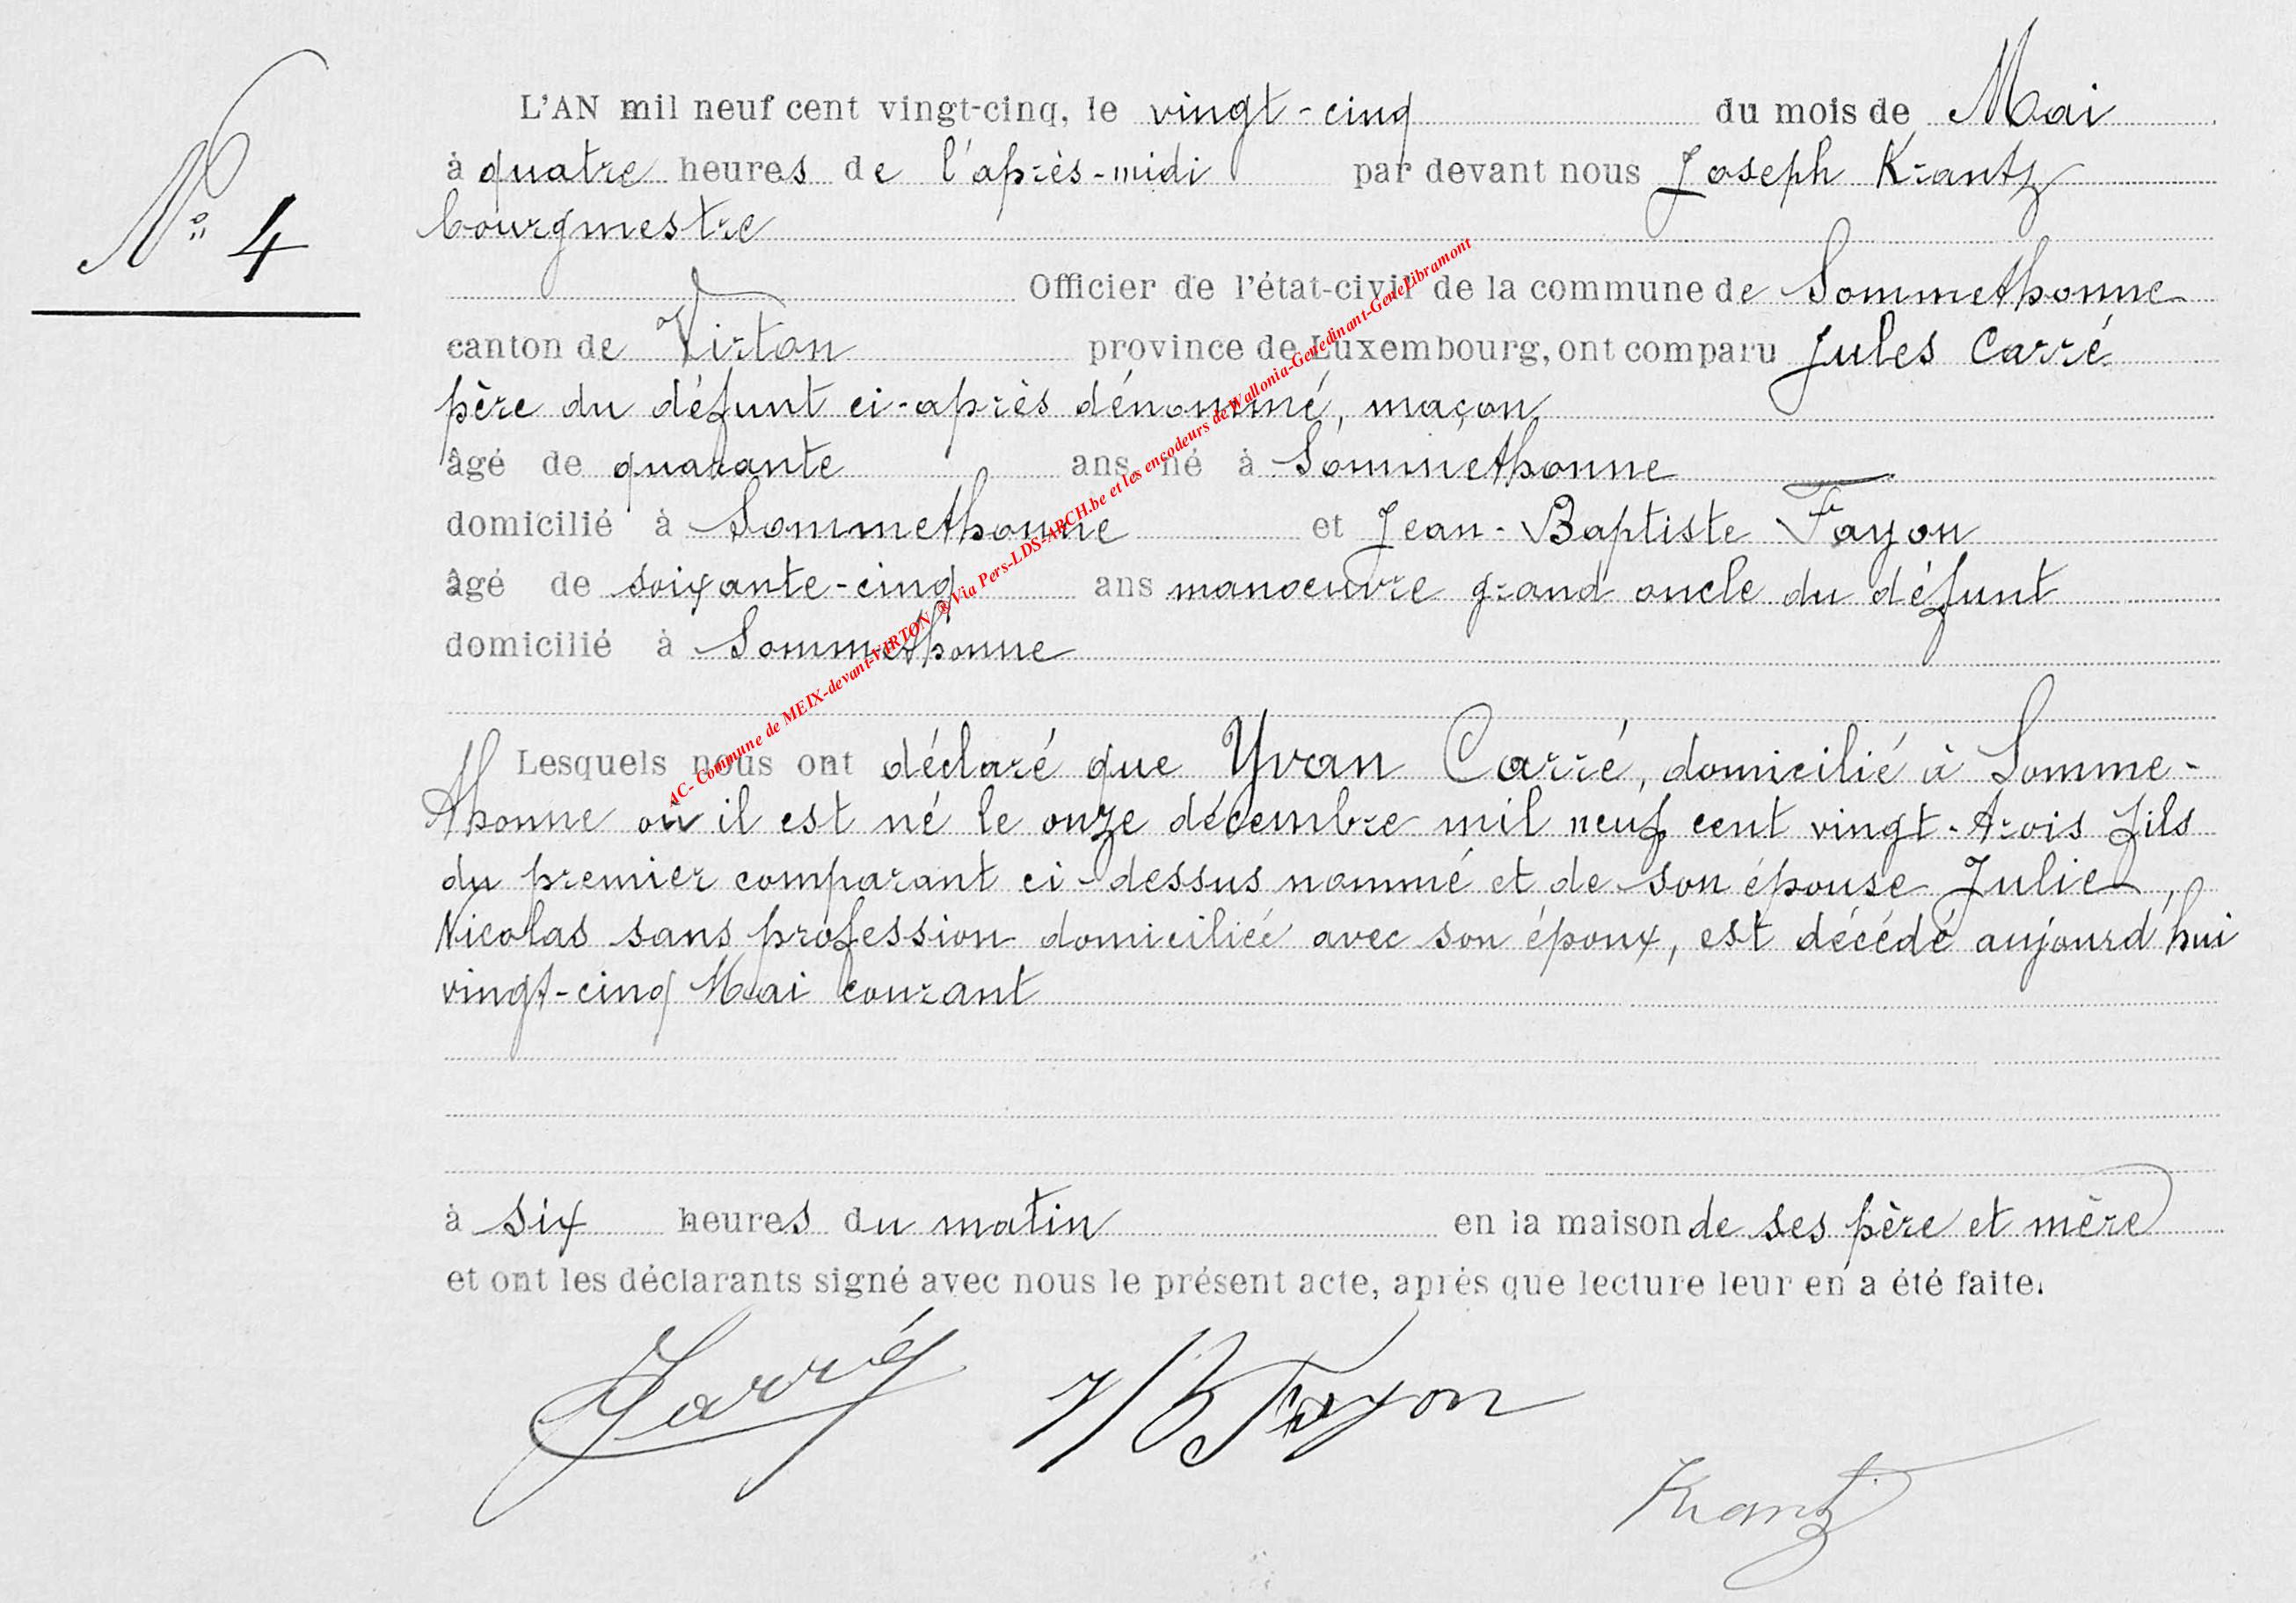 N° 4
L'AN mil neuf cent vingt-cinq, le vingt-cinq du mois de Mai
à quatre heures de l'après-midi par devant nous Joseph Krantz
bourgmestre
Officier de l'état-civil de la commune de Sommethonne
canton de Virton province de Luxembourg, ont comparu Jules Carré
père du défunt ci-après dénommé, maçon
âgé de quarante ans né à Sommethonne
domicilié à Sommethonne et Jean-Baptiste Fayon
âgé de soixante-cinq ans manoeuvre grand oncle du défunt
domicilié à Sommethonne
Lesquels nous ont déclaré que Yvan Carré, domicilié à Somme-
thonne où il est né le onze décembre mil neuf cent vingt-trois fils
du premier comparant ci-dessus nommé et de son épouse Julie,
Nicolas sans profession domiciliée avec son époux, est décédé aujourd'hui
vingt-cinq Mai courant
à six heures du matin en la maison de ses père et mère
et ont les déclarants signé avec nous le présent acte, après que lecture leur en a été faite.
JCarré JB Fayon
Krantz
AC- Commune de MEIX-devant-VIRTON ® Via Pers-LDS-ARCH.be et les encodeurs de Wallonia-Genedinant-GeneLibramont